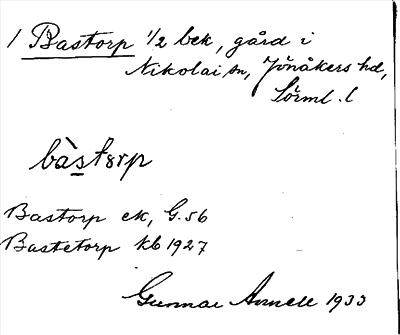 1 Bastorp 1/2 bek, gård i
Nikolai sn, Jönåkers hd,
Sörml. l
bàstorp
Bastorp ek, G. 56
Bastetorp kb 1927
Gunnar 1933